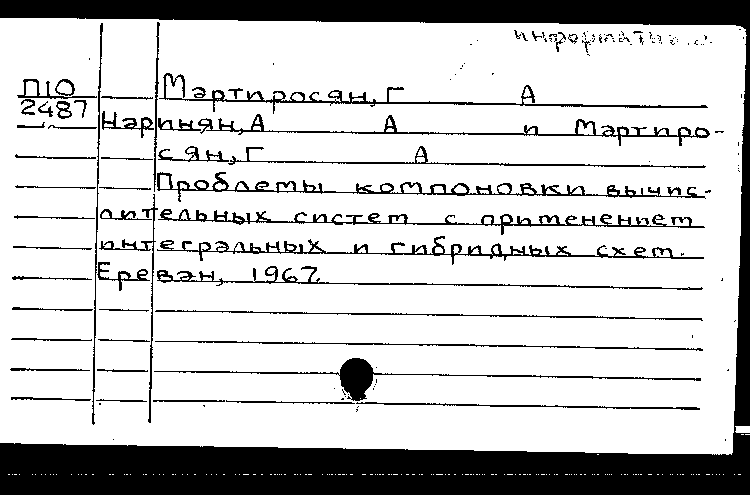 информатика
П10
2487
Мартиросян, Г А
Наринян, А А и Мартиро-
сян, Г А
Проблемы компоновки вычис-
лительных систем с применением
интегральных и гибридных схем.
Ереван, 1967.